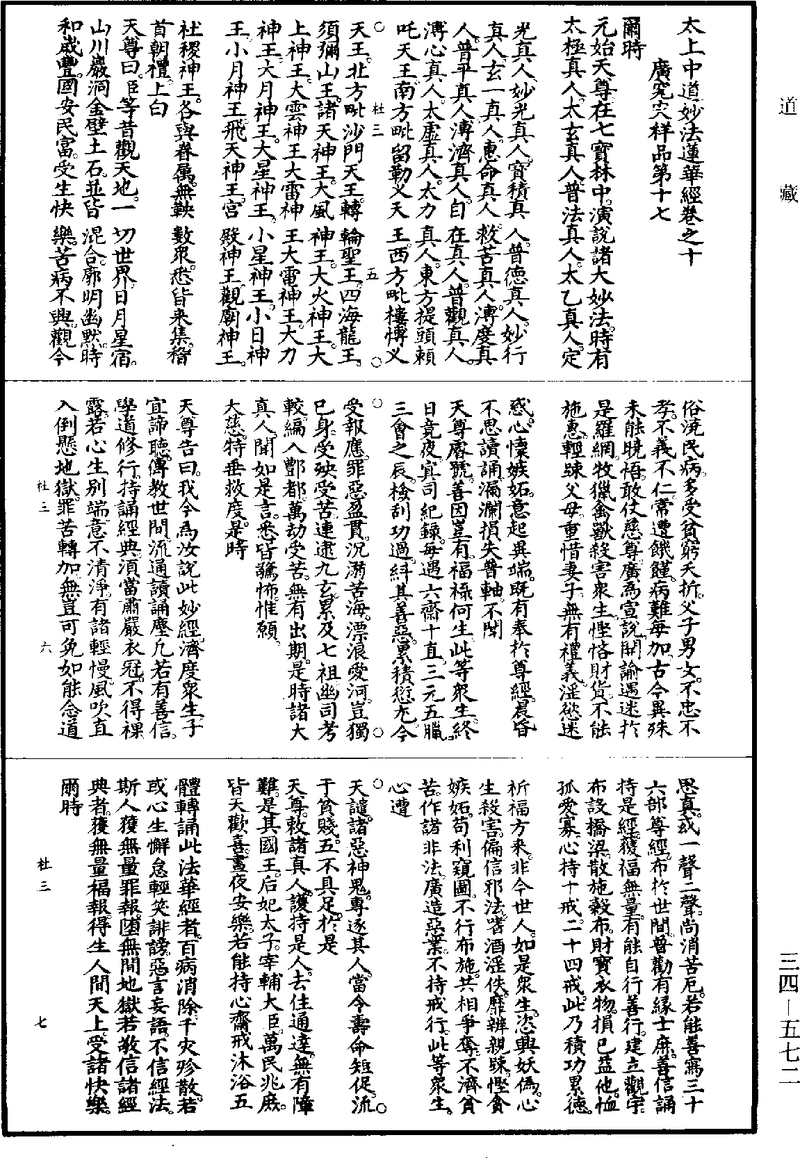 道藏
太上中道妙法蓮華經卷之十
廣究灾祥品第十七
爾時
元始天尊在七寳林中。演說諸大妙法。時有
太極真人。太玄真人。普法真人。太乙真人。定
光真人。妙光真人。寳積真人。普德真人。妙行
真人。玄一真人。惠命真人。救苦真人。溥度真
人。普平真人。溥濟真人。自在真人。普觀真人。
溥心真人。太虛真人。太力真人。東方提頭賴
吒天王。南方毗留勒义天王。西方毗樓愽义
杜三 五
天王。北方毗沙門天王。轉輪聖王。四海龍王。
須彌山王。諸天神王。大風神王。大火神王。大
上神王。大雲神王。大雷神王。大電神王。大力
神王。大月神王。大星神王。小星神王。小日神
王。小月神王。飛天神王。宮殿神王。觀廟神王。
社稷神王。各與眷属。無鞅數衆。悉皆来集。稽
首朝禮。上白
天尊曰。臣等昔觀天地。一切世界。日月星宿。
山川巖洞。金壁土石。並皆混合。廓明幽默。時
和歲豐。國安民富。受生快樂。苦病不與。觀今
俗流民病。多受貧窮夭折。父子男女。不忠不
孝。不義不仁。常遭饑饉。病難每加。古今異殊。
未能曉悟。敢仗慈尊。廣為宣說。開諭愚迷。於
是羅網牧獵禽獸。殺害衆生。慳悋財貨。不能
施惠。輕踈父母。重惜妻子。無有禮義。淫慾迷
惑。心懐嫉妬。意起異端。既有奉於尊經。晨昏
不思讀誦。漏瀾損失普軸。不聞
天尊慶號。善因豈有。福祿何生。此等衆生。終
日竟夜。冥司紀録。每遇六齋十直。三元五臘。
三會之辰。檢刮功過。糾其善惡。累積愆尤。今
受報應。罪惡盈貫。沉溺苦海。漂浪愛河。豈獨
己身受殃受苦。連逮九玄。累及七祖。幽司考
較。編入酆都。萬劫受苦。無有出期。是時諸大
真人。聞如是言。悉皆驚怖。惟願
大慈。特垂救度。是時
天尊告曰。我今為汝說此妙經。濟度衆生。子
宜諦聽。傳教世間。流通讀誦。塵凡若有善信。
學道修行。持誦經典。須當肅嚴衣冠。不得裸
露。若心生別端。意不清淨。有諸輕慢。風吹直
入倒懸地獄。罪苦轉加。無豈可免。如能念道
杜三 六
思真。或一聲二聲。尚消苦厄。若能善寫三十
六部尊經。布於世間。普勸有緣士庶。善信誦
持是經。獲福無量。有能自行善行。建立觀宇。
布設橋梁。散施穀布。財寳衣物。損已益他。恤
孤愛寡。心持十戒。二十四戒。此乃積功累德。
祈福方来。非今世人。如是衆生。恣興妖偽。心
生殺害。偏信邪法。嗜酒淫佚。靡辨親踈。慳貪
嫉妬。苟利窺圖。不行布施。共相爭奪。不濟貧
苦。作諸非法。廣造惡業。不持戒行。此等衆生。
心遭
天譴。諸惡神鬼。専逐其人。當令壽命短促。流
于貧賤。五不具足。於是
天尊。敕諸真人。護持是人。去住通達。無有障
難。是其國王。后妃太子。宰輔大臣。萬民兆庶。
皆大歡喜。晝夜安樂。若能持心齋戒。沐浴五
體。轉誦此法華經者。百病消除。千灾殄散。若
或心生懈怠。輕笑誹謗。惡言妄語。不信經法。
斯人獲無量罪報。堕無間地獄。若敬信諸經
典者。獲無量福報。得生人間天上。受諸快樂。
爾時
杜三 七
三四—五七二